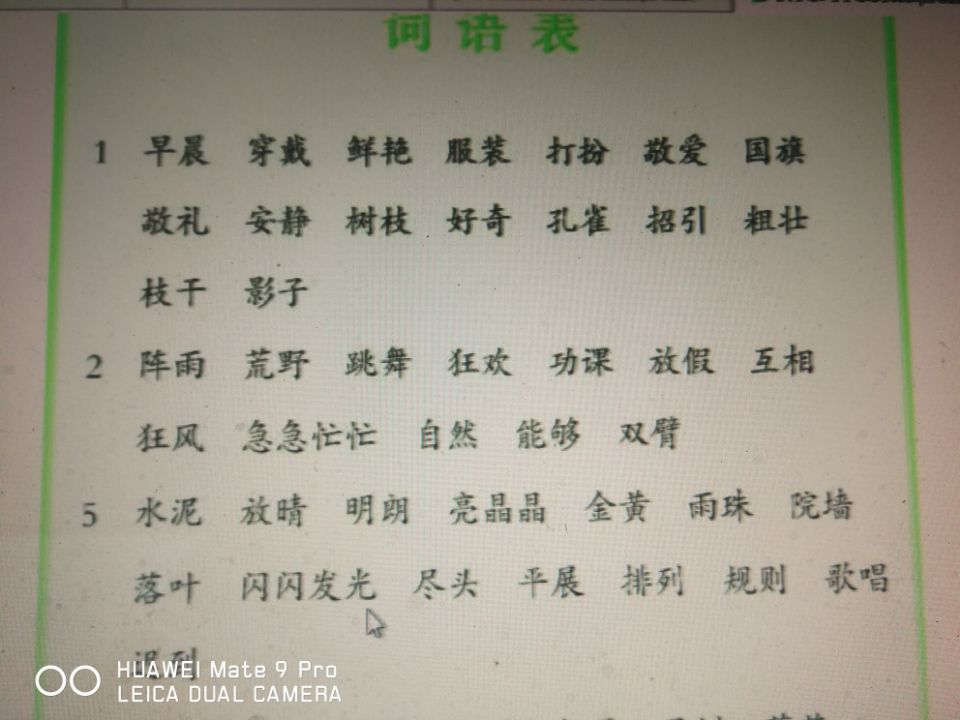 词语表
1 早晨 穿戴 鲜艳 服装 打扮 敬爱 国旗
敬礼 安静 树枝 好奇 孔雀 招引 粗壮
枝干 影子
2 阵雨 荒野 跳舞 狂欢 功课 放假 互相
狂风 急急忙忙 自然 能够 双臂
5 水泥 放晴 明朗 亮晶晶 金黄 雨珠 院墙
落叶 闪闪发光 尽头 平展 排列 规则 歌唱
迟到
HUAWEI Mate 9 Pro
LEICA DUAL CAMERA